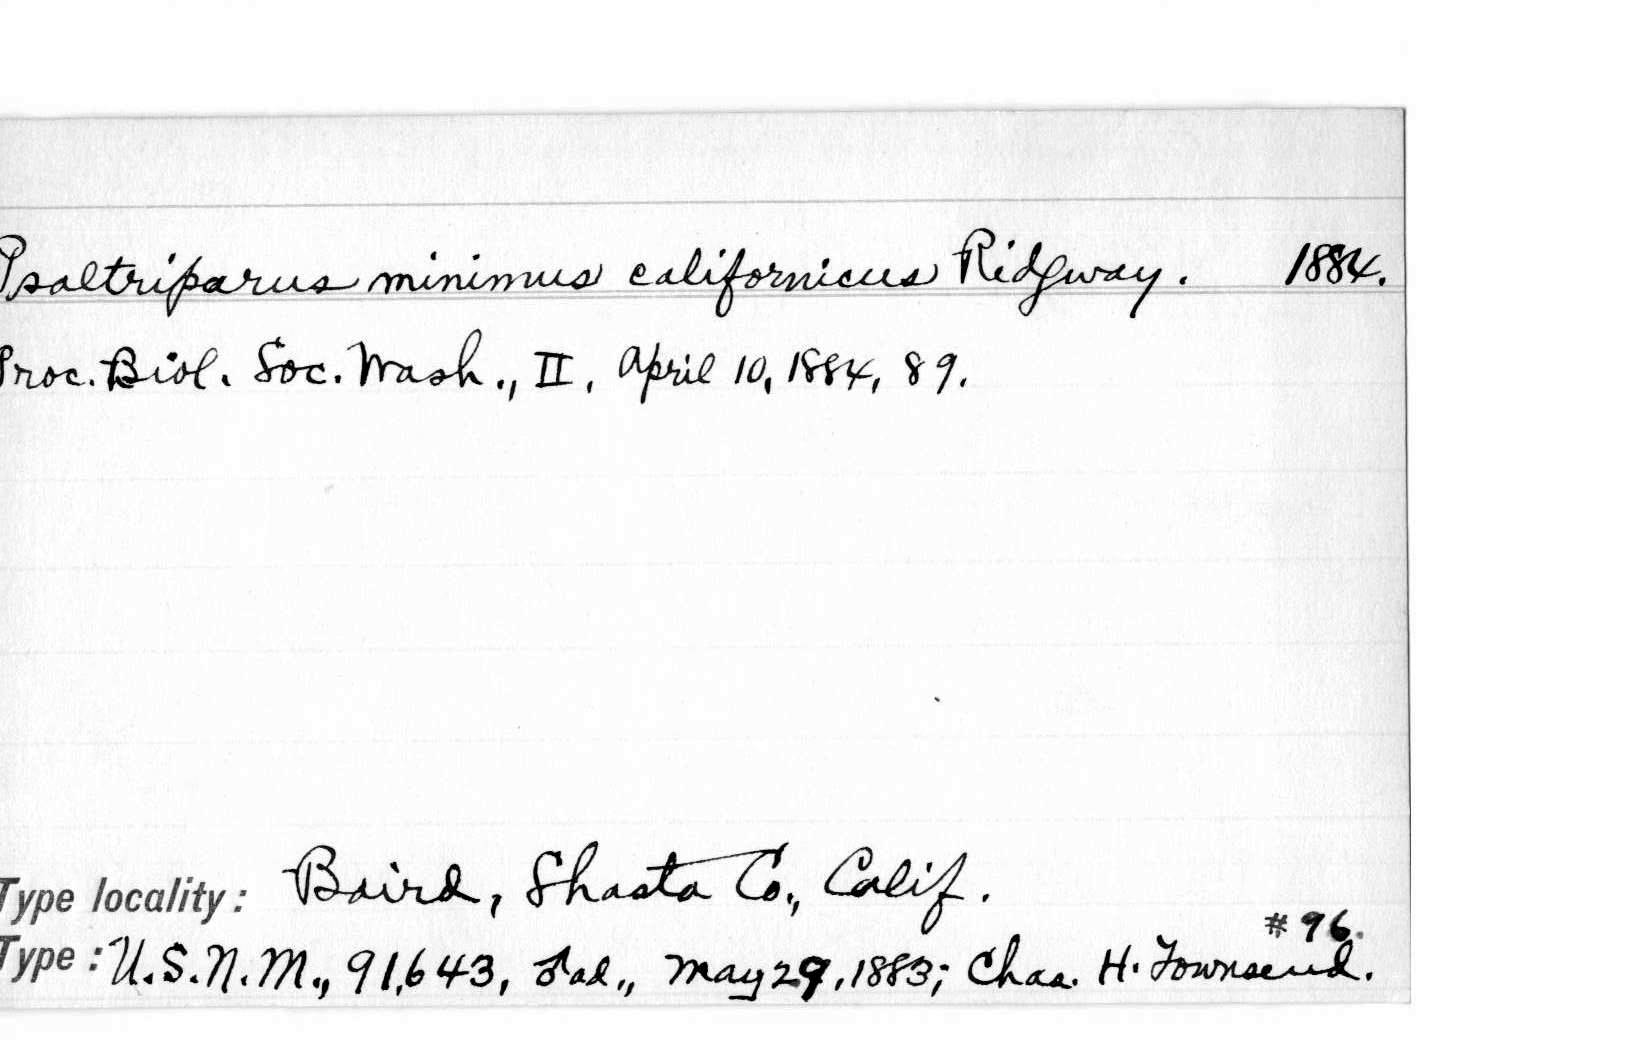 Psaltriparus minimus californicus Ridgway. 1884.
Proc. Biol. Soc. Wash., II, April 10, 1884, 89.
Type locality: Baird, Shasta Co., Calif.
#96.
Type: U.S.N.M., 91,643, ♂ad., May 29, 1883; Chas. H. Townsend.